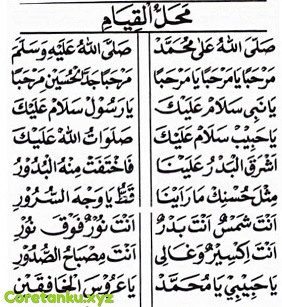 مَحَلُّ الْقِيَامِ
صَلَّى اللهُ عَلَى مُحَمَّدْ صَلَّى اللهُ عَلَيْهِ وَسَلَّمَ
مَرْحَبًا يَا مَرْحَبًا يَا مَرْحَبًا مَرْحَبًا جَدَّ الْحُسَيْنِ مَرْحَبًا
يَا نَبِي سَلَامْ عَلَيْكَ يَا رَسُولْ سَلَامْ عَلَيْكَ
يَا حَبِيبْ سَلَامْ عَلَيْكَ صَلَوَاتُ اللهْ عَلَيْكَ
اَشْرَقَ الْبَدْرُ عَلَيْنَا فَاخْتَفَتْ مِنْهُ الْبُدُورُ
مِثْلَ حُسْنِكْ مَا رَاَيْنَا قَطُّ يَا وَجْهَ السُّرُورِ
اَنْتَ شَمْسٌ اَنْتَ بَدْرٌ اَنْتَ نُورٌ فَوْقَ نُورِ
اَنْتَ اِكْسِيرٌ وَغَالِى اَنْتَ مِصْبَاحُ الصُّدُورِ
يَا حَبِيبِى يَا مُحَمَّدْ يَا عَرُوسَ الْخَافِقَيْنِ
Coretanku.xyz